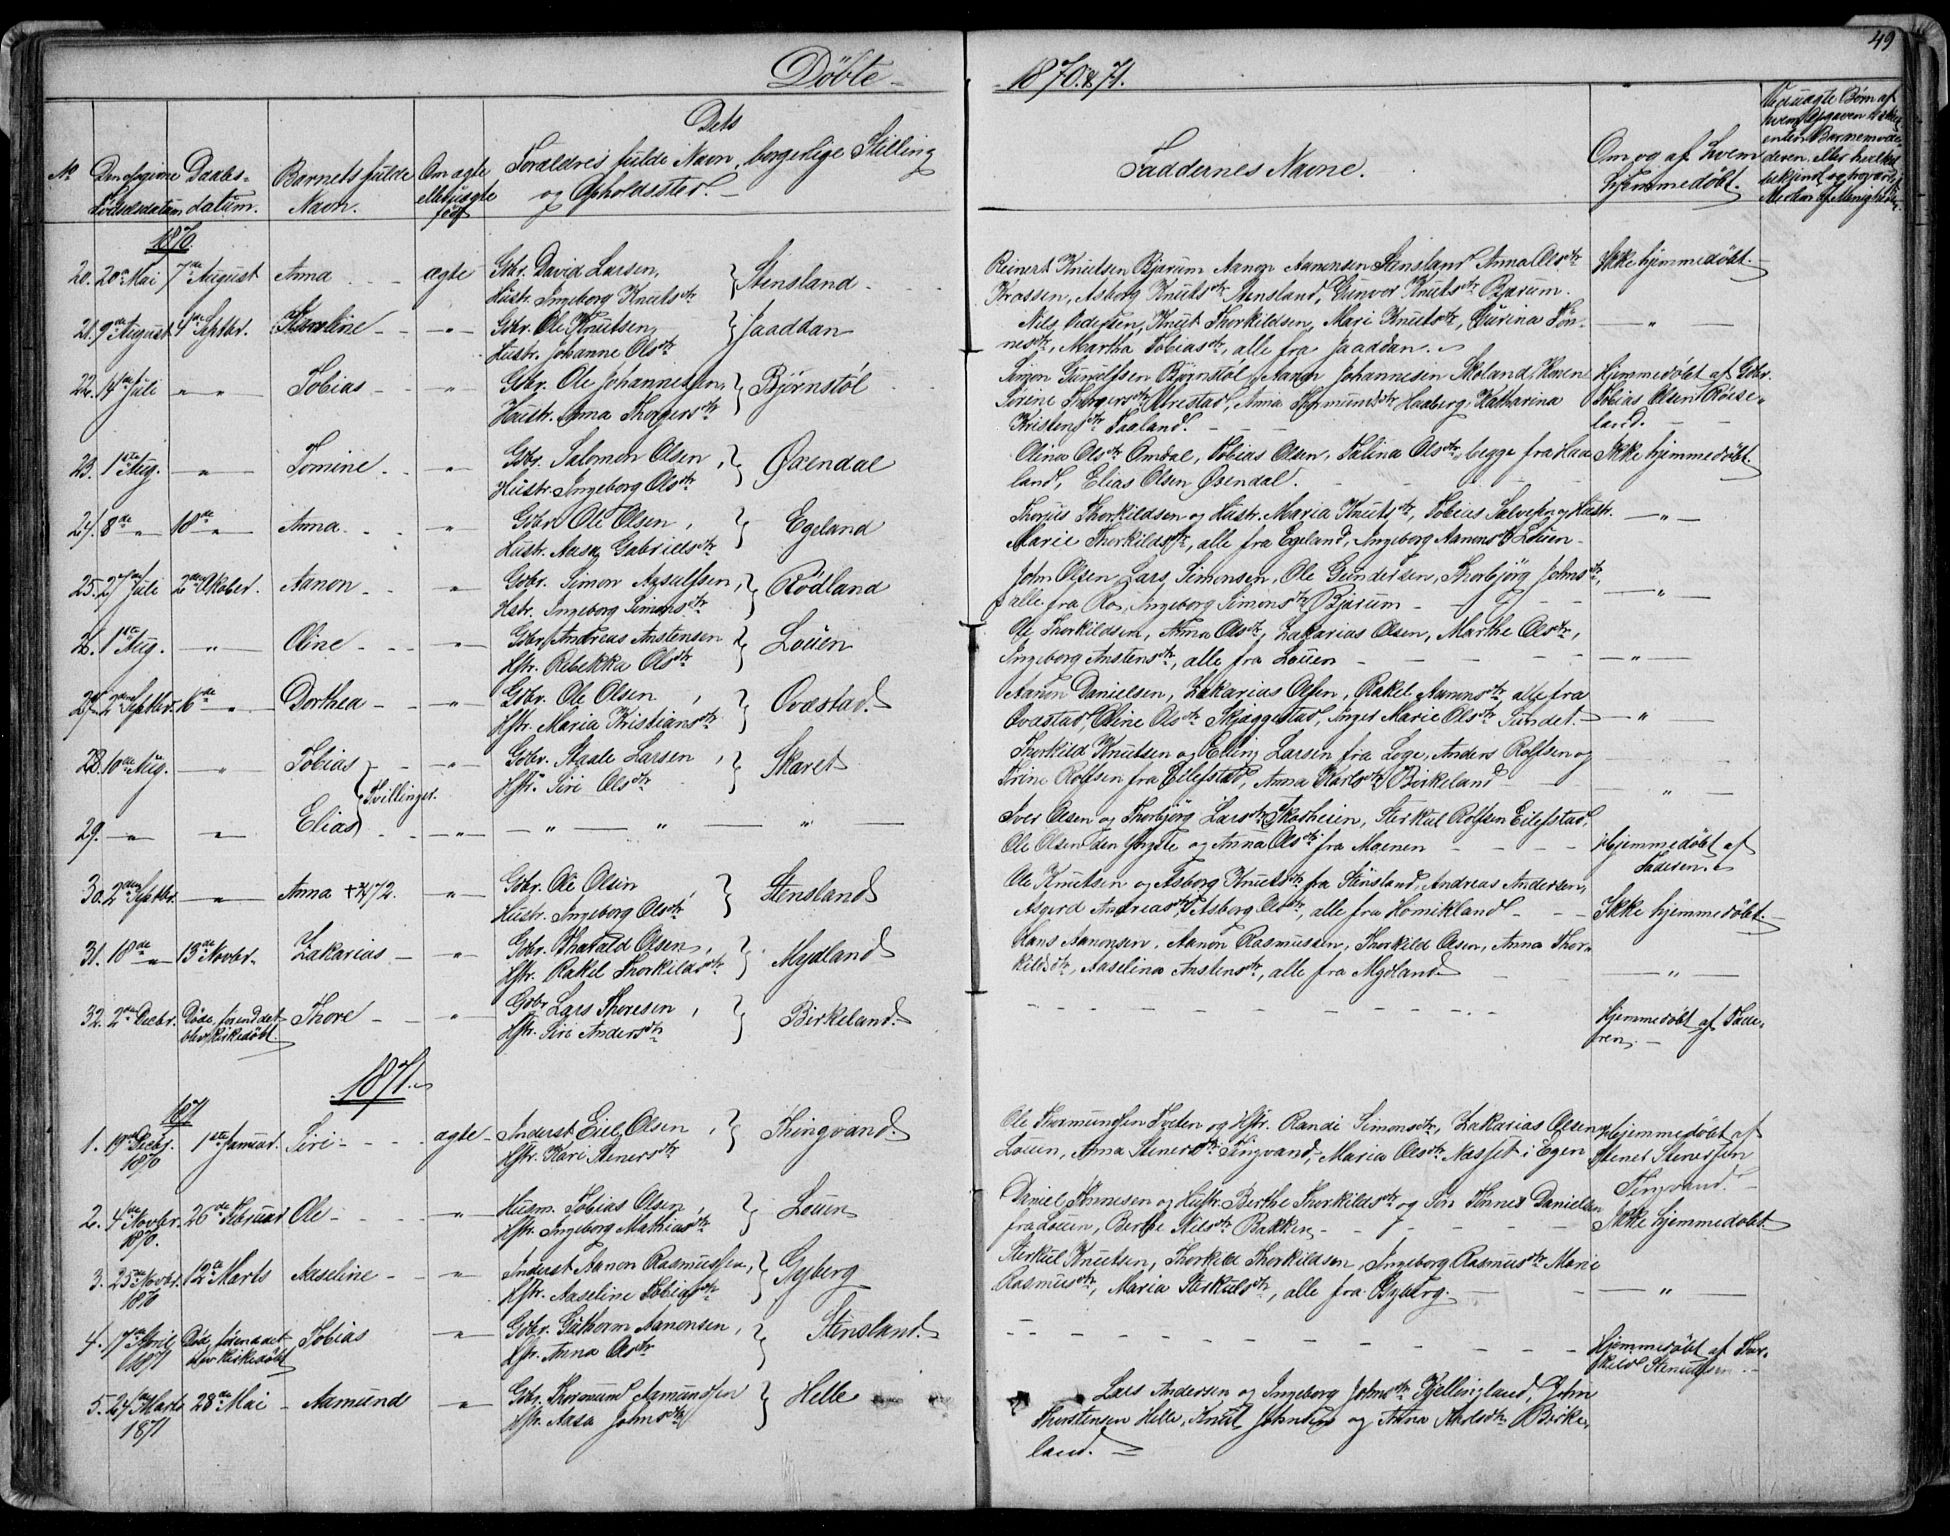 49
Døbte - 1870 & 71.
No
Den opgivne Fødselsdatum
Daabs-datum.
Barnets fulde Navn.
Om ægte eller uægte født
Dets Forældres fulde Navn, borgerlige Stilling og Opholdssted.
Faddernes Navne.
Om og af hvem hjemmedøbt.
1870.
20. 20de Mai 7de August Anna ægte Gbr. David Larsen, Hustr. Ingeborg Knutsdtr } Stensland
Reinert Knutsen Bjærum Aanon Aanonsen Stensland Anna Olsdtr
Krossen, Asborg Knutsdtr Stensland, Gunvor Knutsdtr Bjærum.
Ikke hjemmedøbt.
21. 9de August 4de Septbr. Karoline - " - Gbr. Ole Knutsen, Hustr. Johanne Olsdtr } Jaaddan
Nils Pedersen, Knut Thorkildsen, Mari Knutsdtr, Gurina Tøn-
nesdtr, Martha Tobiasdtr, alle fra Jaaddan.
- " -
22. 14de Juli - " - Tobias - " - Gbr. Ole Johannessen, Hustr. Anna Thorgersdtr } Bjørnstøl
Simon Gunulfsen Bjørnstøl, Aanon Johannesen Skoland, Karen
Serine Torgersdtr Urestad, Anna Thormundsdtr Haaberg, Katharina
Kristensdtr Faaland.
Hjemmedøbt af Gbr.
Tobias Olsen Røise-
land.
23. 1ste Aug. - " - Tomine - " - Gbr. Salomon Olsen, Hustr. Ingeborg Olsdtr } Øxendal
Olena Olsdtr Omdal, Tobias Olsen, Talina Olsdtr begge fra Haa-
land, Elias Olsen Øxendal.
Ikke hjemmedøbt
24. 8de - " - 18de - " - Anna - " - Gbr. Ole Olsen, Hustr. Aasa Gabrielsdtr } Egeland
Thorjus Thorkildsen og Hustr. Maria Knutsdtr, Tobias Salvesen og Hustr.
Marie Thorkildsdtr, alle fra Egeland, Ingeborg Aanonsdtr Louen
- " -
25. 27de Juli 2den Oktober. Aanon - " - Gbr. Simon Asulfsen, Hstr. Ingeborg Simonsdtr } Rødland
John Olsen, Lars Simonsen, Ole Gundersen, Thorbjørg Johnsdtr,
alle fra Ro, Ingeborg Simonsdtr Bjærum
- " -
26. 1ste Aug. - " - Oline - " - Gbr. Andreas Anstensen Hstr. Rebekka Olsdtr } Louen
Ole Thorkildsen, Anna Olsdtr, Zakarias Olsen, Marthe Olsdtr,
Ingeborg Anstensdtr, alle fra Louen
- " -
27. 2den Septbr. 16de - " - Dorthea - " - Gbr. Ole Olsen, Hstr. Maria Kristiansdtr } Ovastad.
Aanen Danielsen, Zakarias Olsen, Rakel Aanensdtr, alle fra
Ovastad, Oline Olsdtr Skjæggestad, Inger Marie Olsdtr Sundet.
- " -
28. 10de Aug. - " - Tobias } Tvillinger. - " - Gbr. Staale Larsen, Hstr. Siri Olsdtr } Skaret
Thorkild Knutsen og Elling Larsen fra Loge, Anders Rolfsen og
Trine Rolfsen fra Eilefstad, Anna Karlsdtr Birkeland
"
29. - " - " Elias } - " - " - " - " -
Iver Olsen og Thorbjørg Larsdtr Skarheien, Sterkul Rolfsen Eilefstad,
Ole Olsen den yngste og Anna Olsdtr fra Moenen
Hjemmedøbt af
Faderen.
30. 2den Septbr. - " - Anna - " - Gbr. Ole Olsen Hustr. Ingeborg Olsdtr } Stensland
Ole Knutsen og Asborg Knutsdtr fra Stensland, Andreas Andersen,
Asgerd Andreasdtr, Asborg Olsdtr, alle fra Homikland
Ikke hjemmedøbt.
31. 18de - " - 13de Novbr. Zakarias - " - Gbr. Tharald Olsen, Hstr. Rakel Thorkildsdtr } Mydland
Hans Aanonsen, Aanon Rasmussen, Thorkild Olsen, Anna Thor-
kildsdtr, Aaselina Anstensdtr, alle fra Mydland
- " -
32. 2den Decbr. Døde, førend det blev kirkedøbt. Thore - " - Gbr. Lars Thoresen, Hstr. Siri Andersdtr } Birkeland.
Hjemmedøbt af Fade-
ren.
1871.
1871
1. 19de Decbr. 1870 1ste Januar. Siri ægte Inderst Eiel Olsen, Hstr. Kari Stenersdtr } Thingvand.
Ole Thormundsen Tveten og Hstr. Randi Simonsdtr, Zakarias Olsen
Louen, Anna Stenersdtr Tingvand, Maria Olsdtr Nasset i Egen
Hjemmedøbt af
Stener Stenersen
Tingvand.
2. 4de Novbr. 1870. 26de Februar Ole - " - Husm. Tobias Olsen, Hstr. Ingeborg Mathiasdtr } Louen
Daniel Tønnesen og Hustr. Berthe Thorkildsdtr og Søn Tønnes Danielsen
fra Louen, Berthe Nilsdtr Bakken
Ikke hjemmedøbt
3. 25de Novbr. 1870 12te Marts Aaseline - " - Inderst Aanon Rasmussen, Hstr. Aaseline Tobiasdtr } Gyberg
Sterkul Knutsen, Thorkild Thorkildsen, Ingeborg Rasmusdtr Marie
Rasmusdtr, Maria Sterkulsdtr, alle fra Gyberg.
- " -
4. 17de April 1871 Død, førend det blev kirkedøbt Tobias - " - Gbr. Guthorm Aanonsen, Hstr. Anna Olsdtr } Stensland.
Hjemmedøbt af Thor-
kild
5. 24de Marts 1871 28de Mai Aamund - " - Gbr. Thormund Aamundsen Hstr. Aasa Johnsdtr } Helle
Lars Andersen og Ingeborg Johnsdtr Kjellingland, John
Thorstensen Helle, Knut Johnsen og Anna Karlsdtr Birke-
land.